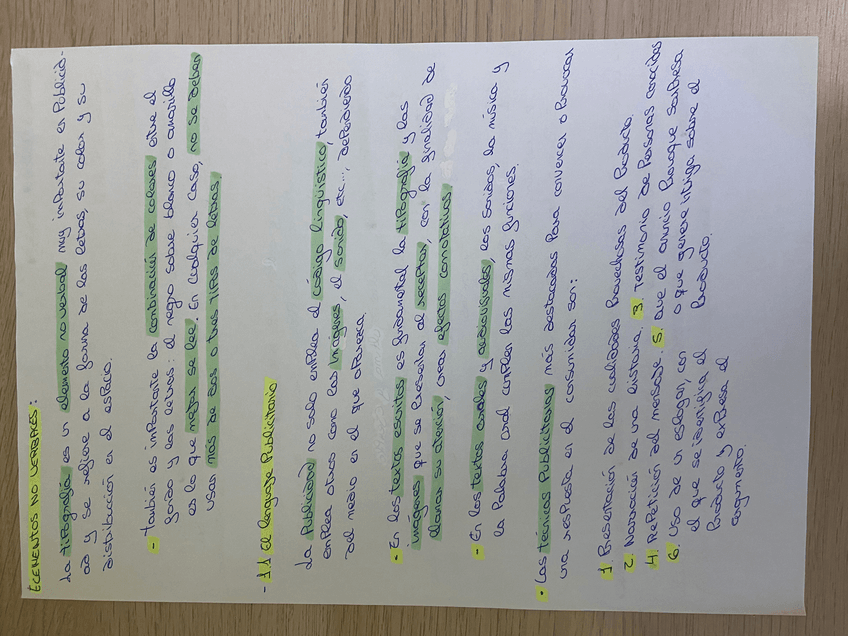 ELEMENTOS NO VERBALES:
La tipografía es un elemento no verbal muy importante en Publicid-
ad y se refiere a la forma de las letras, su color y su
distribución en el espacio.
- También es importante la combinación de colores entre el
fondo y las letras: el negro sobre blanco o amarillo
es lo que mejor se lee. En cualquier caso, no se deben
usar más de dos o tres tipos de letras.
- 1.1 El lenguaje Publicitario
La Publicidad no solo emplea el código lingüístico, también
emplea otros como las imágenes, el sonido, etc..., dependiendo
del medio en el que aparezca.
- En los textos escritos es fundamental la tipografía y las
imágenes que se presentan al receptor, con la finalidad de
llamar su atención, crear efectos connotativos.
- En los textos orales y audiovisuales, los sonidos, la música y
la Palabra oral cumplen las mismas funciones.
• Las técnicas Publicitarias más destacadas Para convencer o Provocar
una respuesta en el consumidor son:
1. Presentación de las cualidades Provechosas del Producto.
2. Narración de una historia. 3. Testimonio de Personas conocidas
4. Repetición del mensaje. 5. Que el anuncio Provoque sorpresa
o que genere intriga sobre el
Producto.
6. Uso de un eslogan, con
el que se identifica el
Producto y expresa el
argumento.